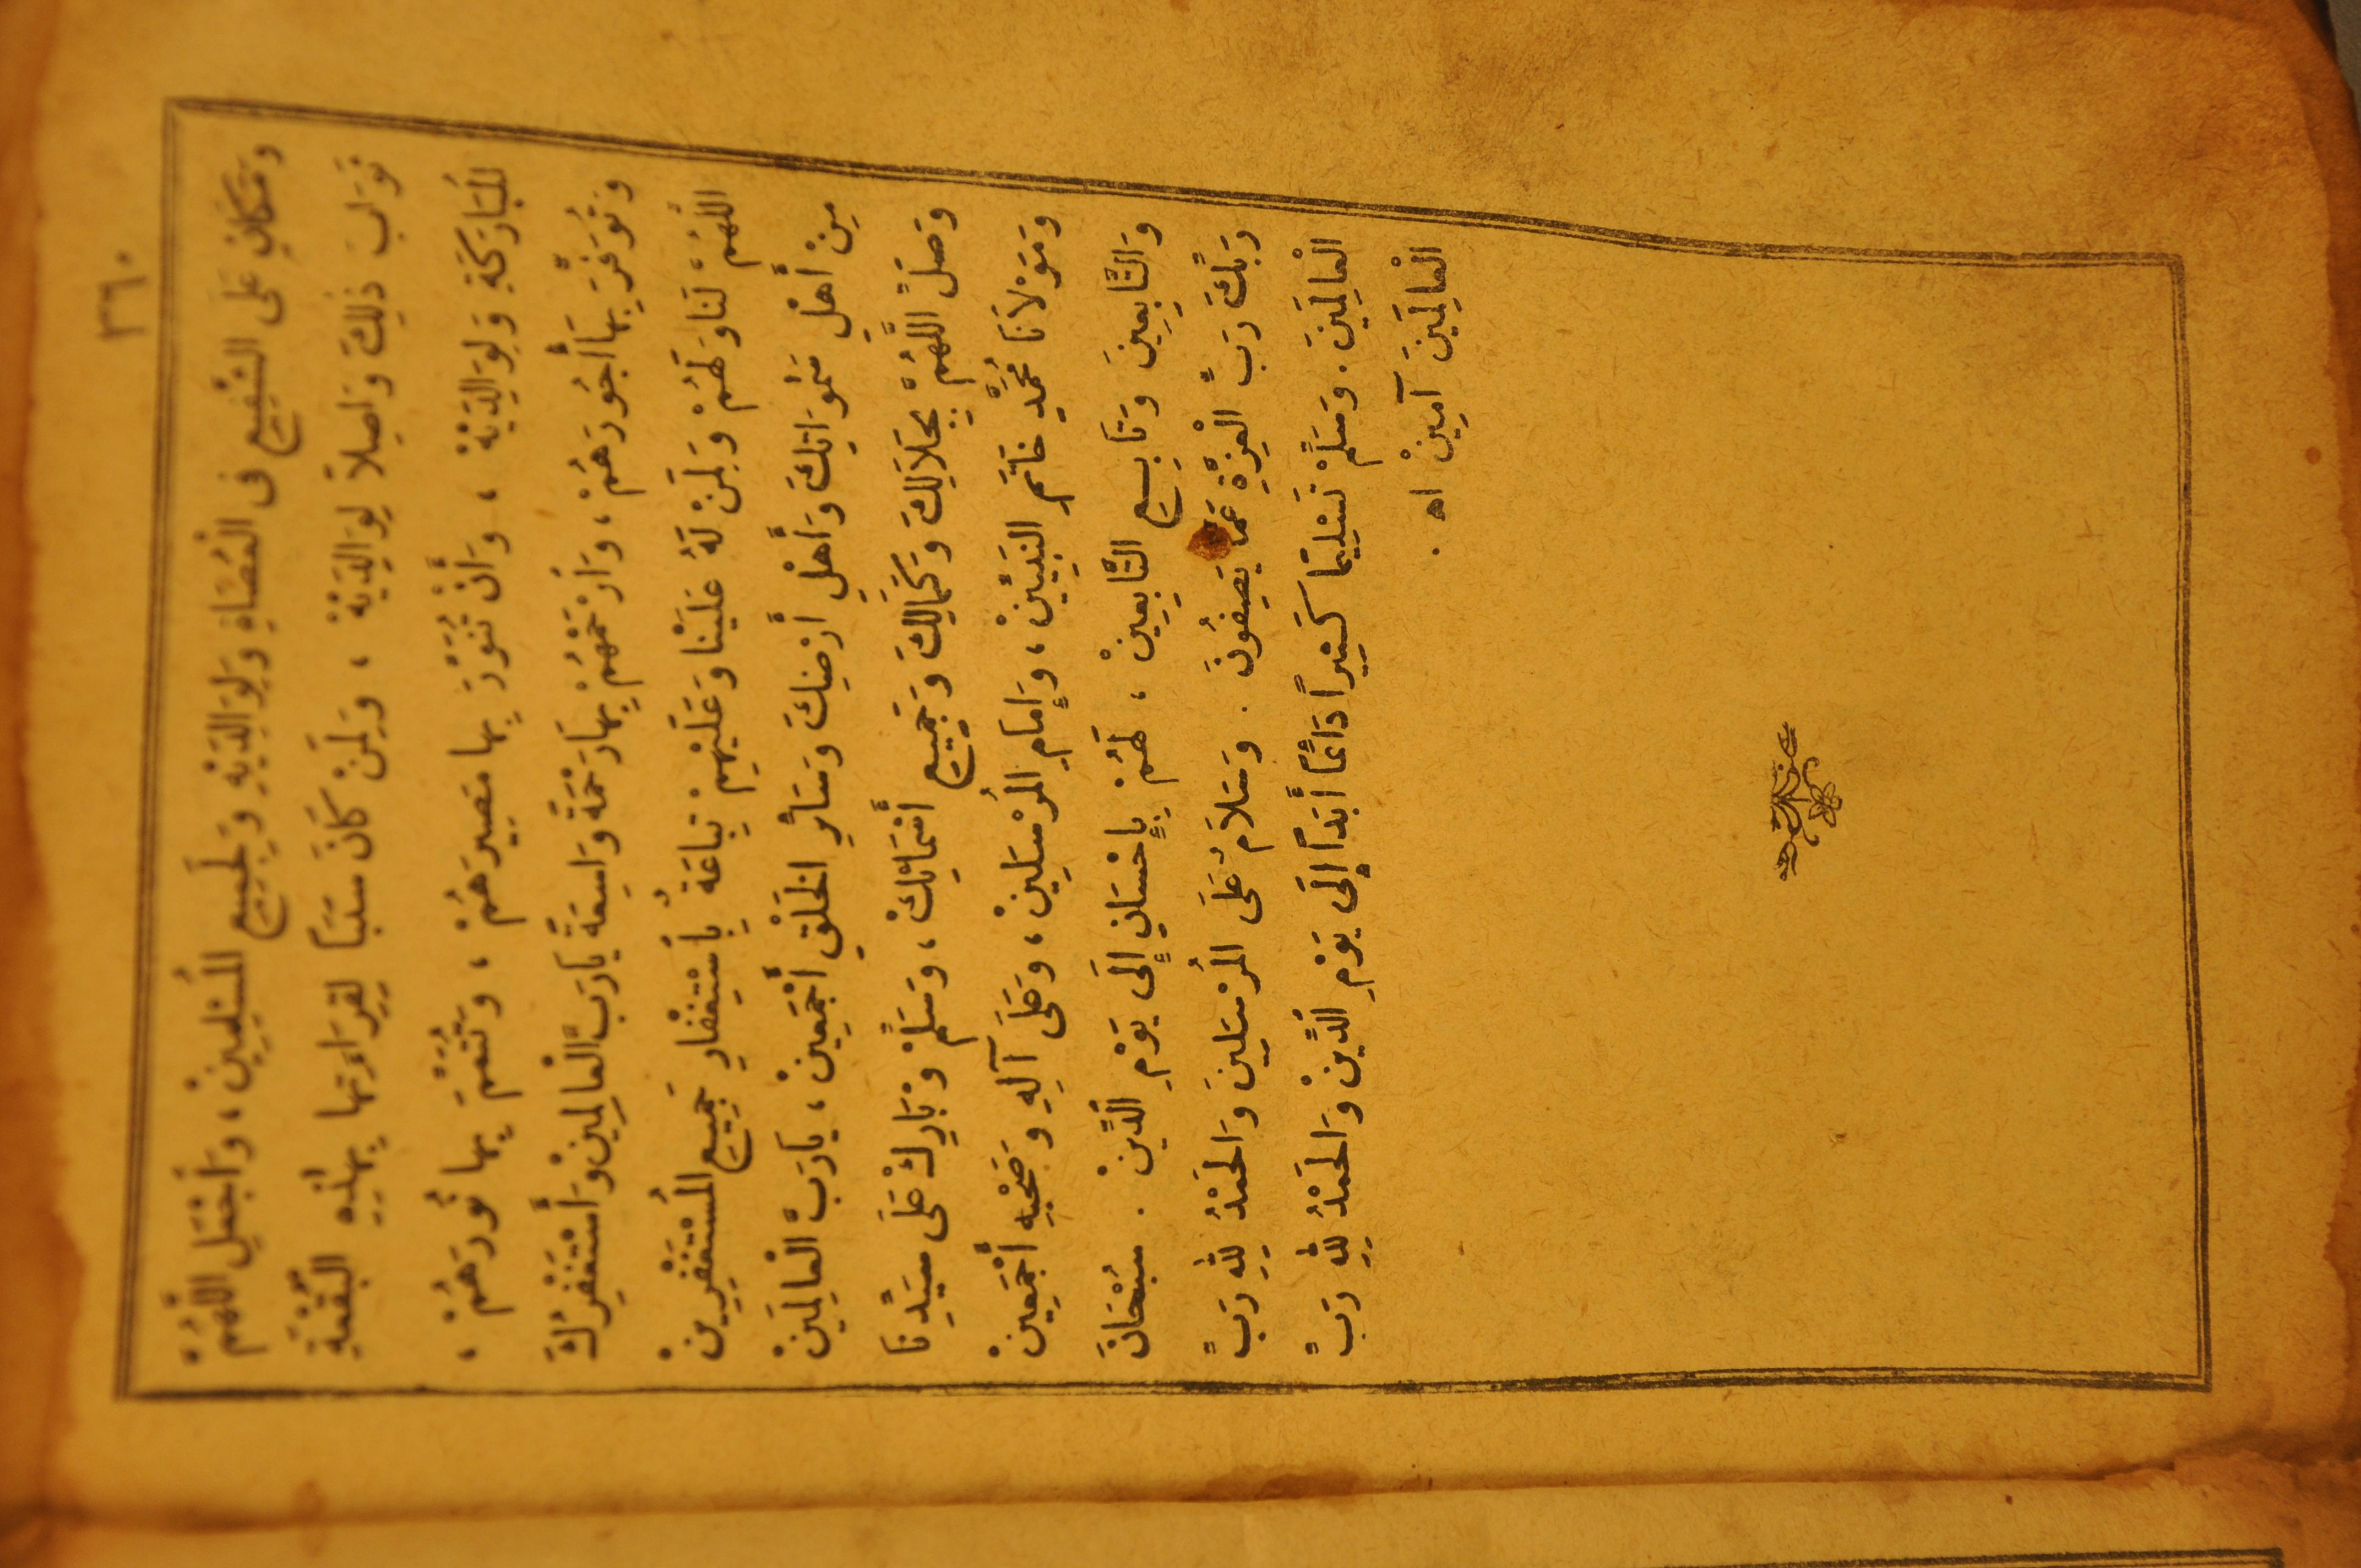 ٣٦٠
وَمَكَانٍ عَلَى الشَّفِيعِ فى الْعُصَاةِ وَلِوَالِدَيْهِ وَلِجَمِيعِ الْمُسْلِمِينْ ، وَاجْعَلِ اللَّهُمَّ
ثَوَابَ ذٰلِكَ وَاصِلاً لِوَالِدَيْهْ ، وَلِمَنْ كَانَ سَبَبًا لِقِرَاءَتِهَا بِهٰذِهِ الْبُقْعَةِ
الْمُبَارَكَةِ وَلِوَالِدَيْهْ ، وَأَنْ تُنَوِّرَ بِهَا مَصِيرَهُمْ ، وَتُتَمِّمَ بِهَا نُورَهُمْ ،
وَتُوَفِّرَ بِهَا أُجُورَهُمْ ، وَارْحَمْهُمْ بِهَا رَحْمَةً وَاسِعَةً يَارَبَّ الْعَالَمِينْ وَأَسْتَغْفِرُكَ
اللَّهُمَّ لَنَا وَلَهُمْ وَلِمَنْ لَهُ عَلَيْنَا وَعَلَيْهِمْ تِبَاعَةٌ بِاسْتِغْفَارِ جَمِيعِ الْمُسْتَغْفِرِينْ
مِنْ أَهْلِ سَمٰوَاتِكَ وَأَهْلِ أَرْضِكَ وَسَائِرِ الْخَلْقِ أَجْمَعِينْ ، يَارَبَّ الْعَالَمِينْ
وَصَلِّ اللَّهُمَّ بِجَلَالِكَ وَكَمَالِكَ وَجَمِيعِ أَسْمَائِكْ ، وَسَلِّمْ وَبَارِكْ عَلَى سَيِّدِنَا
وَمَوْلَانَا مُحَمَّدٍ خَاتَمِ النَّبِيِّينْ ، وَإِمَامِ الْمُرْسَلِينْ ، وَعَلَى آلِهِ وَصَحْبِهِ أَجْمَعِينْ
وَالتَّابِعِينَ وَتَابِعِ التَّابِعِينْ ، لَهُمْ بِإِحْسَانٍ إِلَى يَوْمِ الدِّينْ . سُبْحَانَ
رَبِّكَ رَبِّ الْعِزَّةِ عَمَّا يَصِفُونَ . وَسَلَامٌ عَلَى الْمُرْسَلِينَ وَالْحَمْدُ لِلّٰهِ رَبِّ
الْعَالَمِينَ . وَسَلِّمْ تَسْلِيمًا كَثِيرًا دَائِمًا أَبَدًا إِلَى يَوْمِ الدِّينْ وَالْحَمْدُ لِلّٰهِ رَبِّ
الْعَالَمِينَ آمِينْ اهـ .